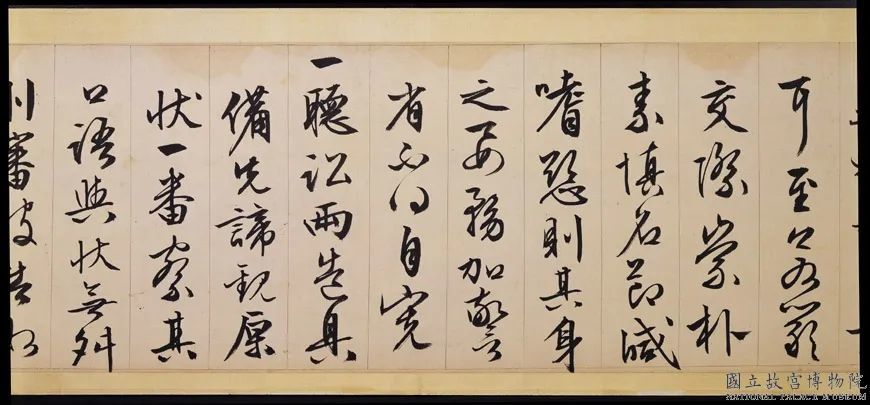 耳至嚴
交際崇朴
素慎名節減
嗜慾則其身
之要務加警
省不自寬
一聽訟兩造具
備先諦觀原
狀一番察其
口語與狀無舛
審
國立故宮博物院
NATIONAL PALACE MUSEUM